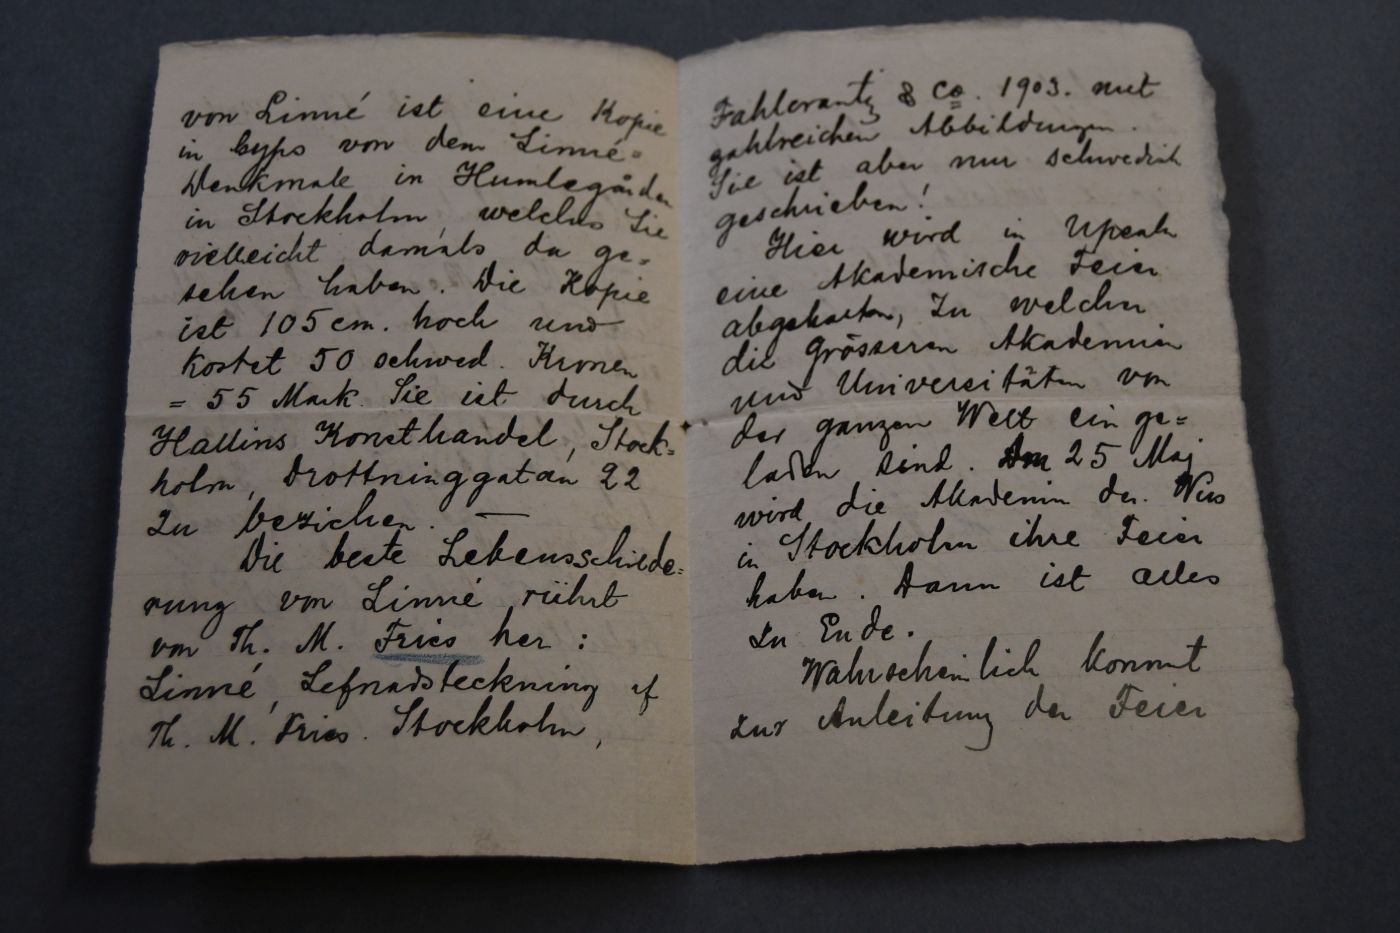 von Linné ist eine Kopie
in Gyps von dem Linné=
Denkmale in Humlegården
in Stockholm welches Sie
vielleicht damals da ge=
sehen haben. Die Kopie
ist 105 cm. hoch und
kostet 50 schwed. Kronen
= 55 Mark. Sie ist durch
Hallins Konsthandel, Stock=
holm, Drottninggatan 22
zu beziehen. —
Die beste Lebensschilde=
rung von Linné rührt
von Th. M. Fries her:
Linné, Lefnadsteckning af
Th. M. Fries. Stockholm,
Fahlcrantz & Co. 1903. mit
zahlreichen Abbildungen.
Sie ist aber nur schwedisch
geschrieben!
Hier wird in Upsala
eine Akademische Feier
abgehalten, zu welchen
die grösseren Akademien
und Universitäten von
der ganzen Welt ein ge=
laden sind. Am 25 Maj
wird die Akademin der Wiss
in Stockholm ihre Feier
haben. Dann ist alles
zu Ende.
Wahrscheinlich kommt
zur Anleitung der Feier